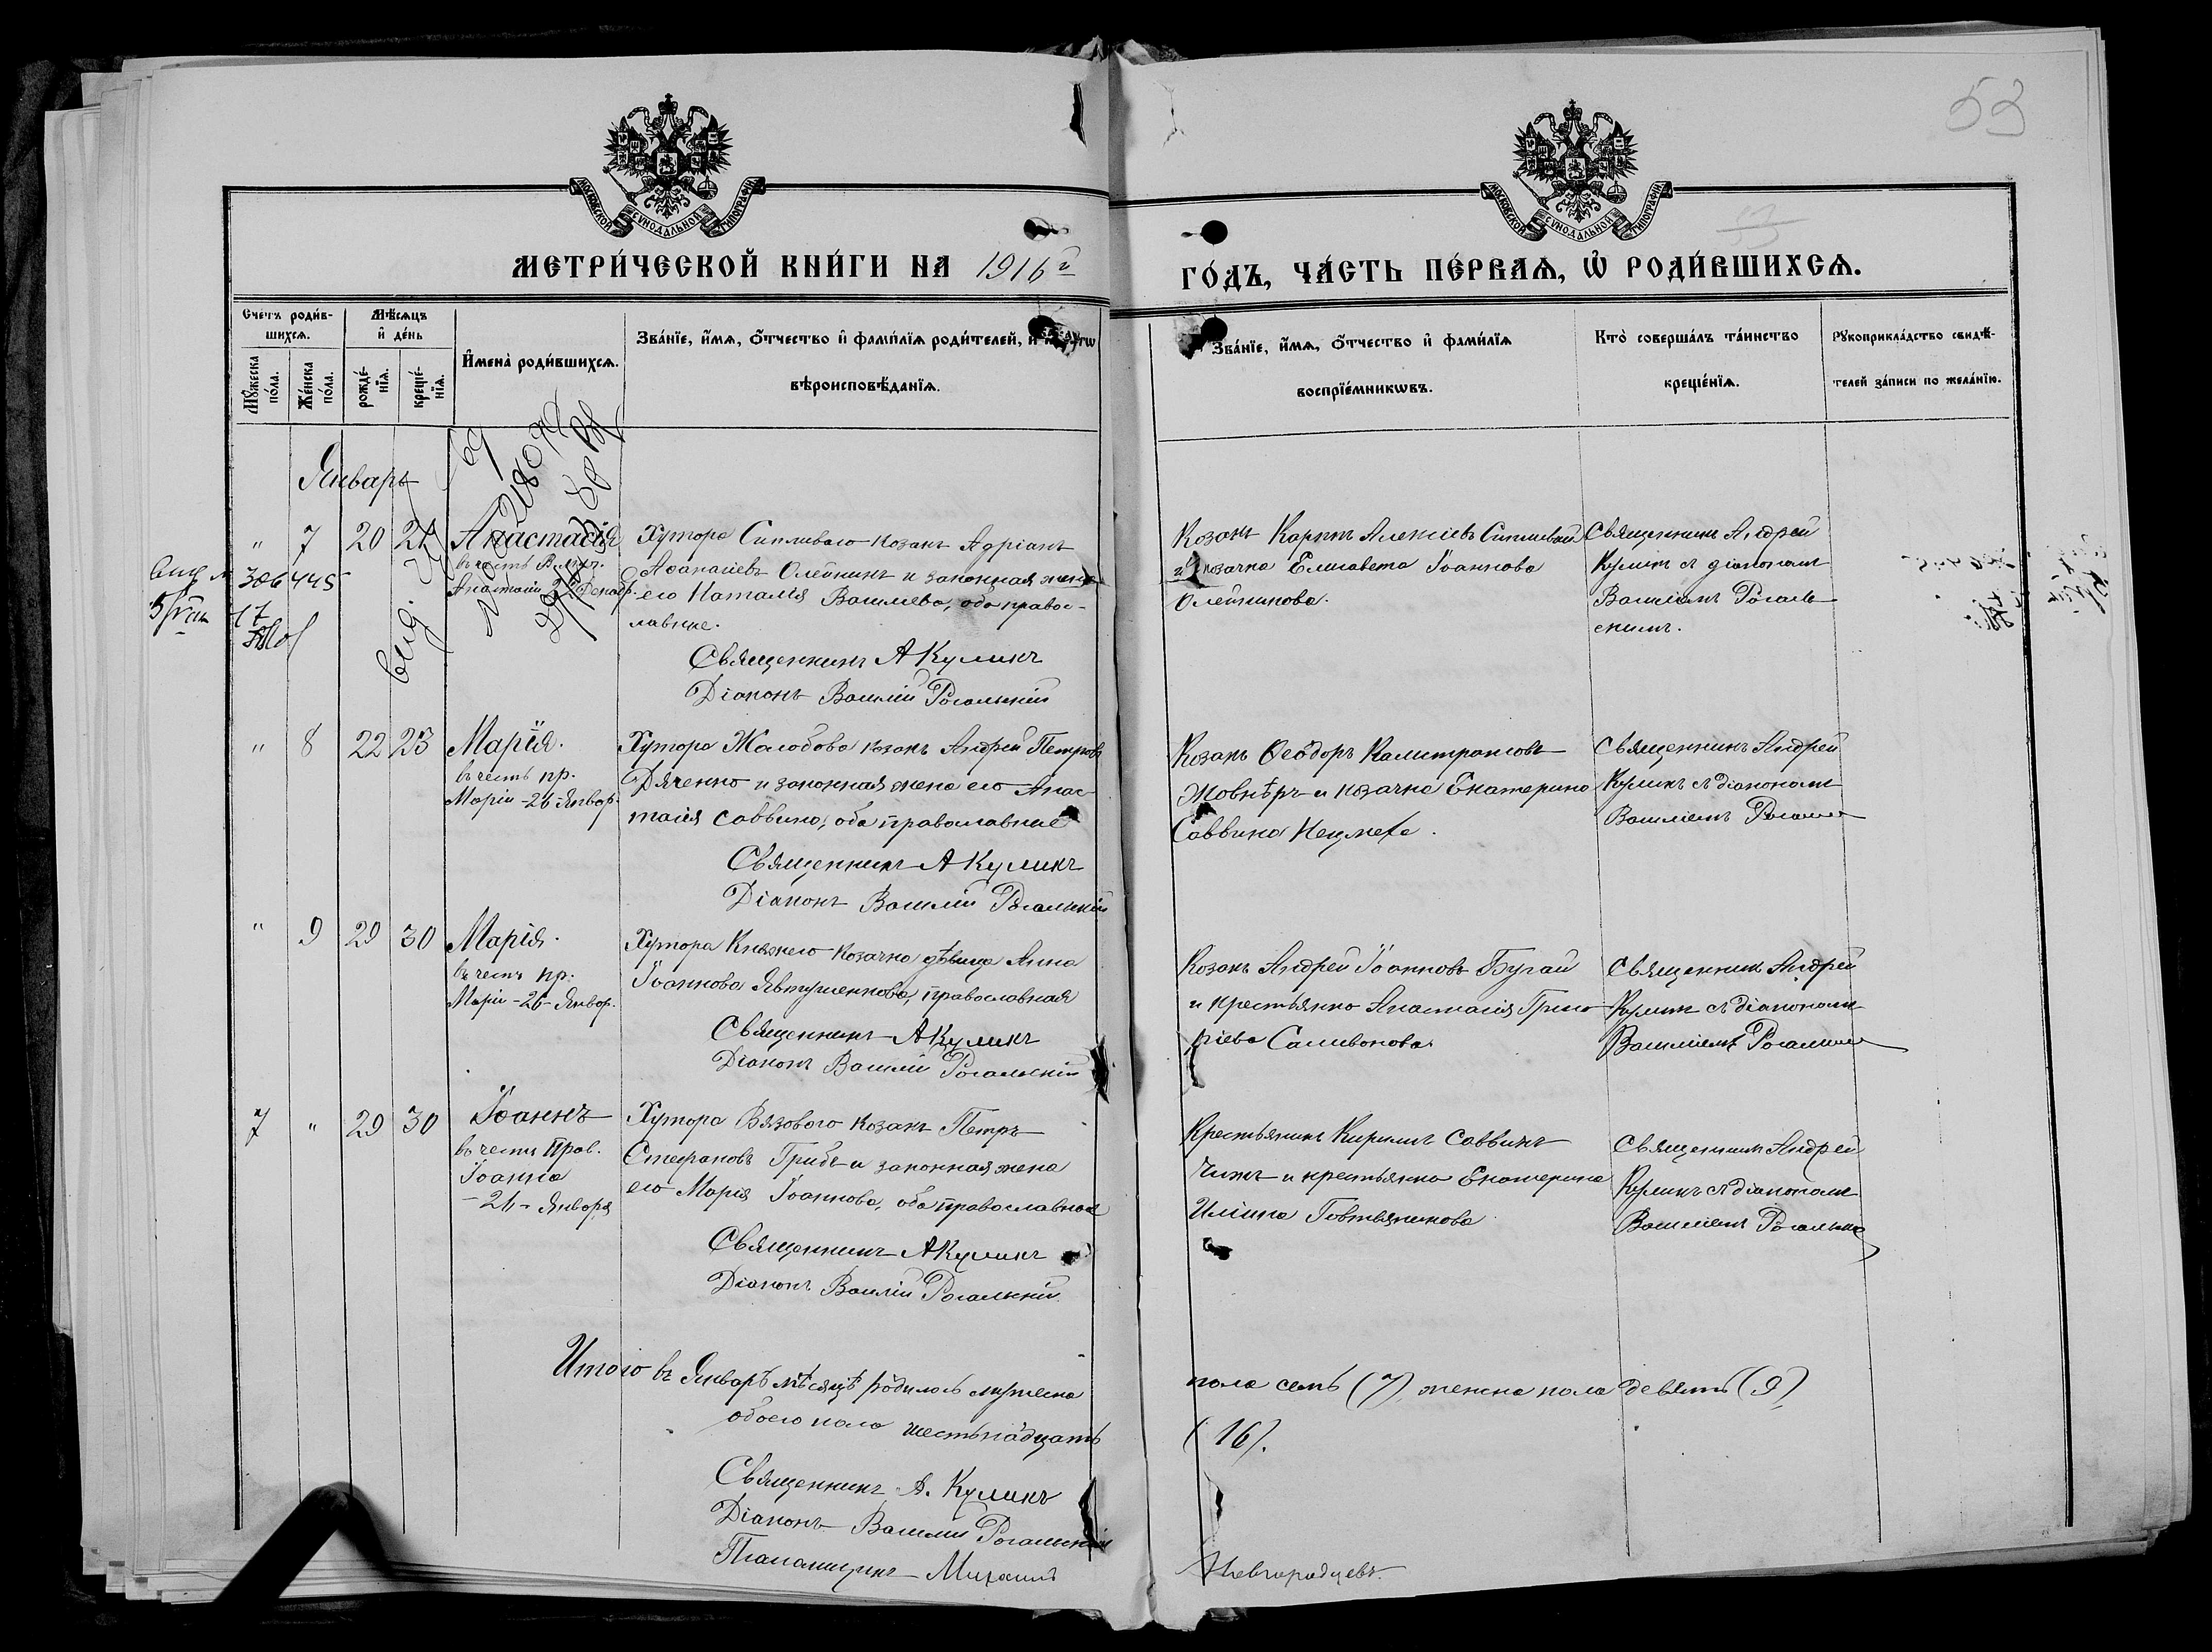 53
МОСКОВСКОЙ СѴНОДАЛЬНОЙ ТИПОГРАФІИ
МОСКОВСКОЙ СѴНОДАЛЬНОЙ ТИПОГРАФІИ
МЕТРИ́ЧЕСКОЙ КНИ́ГИ НА 1916 й
ГО́ДЪ, ЧА́СТЬ ПЕ́РВАѦ, Ѡ҆ РОДИ́ВШИХСѦ.
Сче́тъ роди́в-
шихсѧ.
Мꙋ́жеска по́ла.
Же́нска по́ла.
Мѣ́сѧцъ
и҆ де́нь
рожде́-
нїѧ.
креще́-
нїѧ.
И҆мена̀ роди́вшихсѧ.
Зва́нїе, и҆́мѧ, ѻ҆́тчество и҆ фами́лїѧ роди́телей, и҆
вѣроисповѣ́данїѧ.
Зва́нїе, и҆́мѧ, ѻ҆́тчество и҆ фами́лїѧ
воспрїе́мникѡвъ.
Кто̀ соверша́лъ та́инство
креще́нїѧ.
Рꙋкоприкла́дство свидѣ́-
телей за́писи по жела́нїю.
Январь
" 7 20 21 Анастасія
въ честь В.муч.
Анастасіи 22 Декабр.
306445
17
Хутора Сипливаго козакъ Адріанъ
Аѳанасіевъ Олейникъ и законная жена
его Наталія Василіева, оба правос-
лавные.
Священникъ А Куликъ
Діаконъ Василій Рогальскій
Козакъ Карпъ Алексіевъ Сипливый
и козачка Елисавета Іоаннова
Олейникова.
Священникъ Андрей
Куликъ съ діакономъ
Василіемъ Рогаль
скимъ.
" 8 22 23 Марія.
въ честь пр.
Маріи -26- Январ.
Хутора Жалобова козакъ Андрей Петровъ
Дяченко и законная жена его Анас-
тасія Саввина, оба православные
Священникъ А Куликъ
Діаконъ Василій Рогальскій
Козакъ Ѳеодоръ Калистратовъ
Жовнѣръ и козачка Екатерина
Саввина
Священникъ Андрей
Куликъ съ діакономъ
Василіемъ
" 9 29 30 Марія.
въ честь пр.
Маріи -26- Январ.
Хутора Княжего козачка дѣвица Анна
Іоаннова Явтушенкова, православная
Священникъ А Куликъ
Діаконъ Василій Рогальскій
Козакъ Андрей Іоанновъ Бугай
и крестьянка Анастасія Григо-
ріева Саливонова
Священникъ Андрей
Куликъ съ діакономъ
Василіемъ
7 " 29 30 Іоаннъ
въ честь Прав.
Іоанна
-26- Января
Хутора Вязового козакъ Петръ
Стефановъ Грибъ и законная жена
его Марія Іоаннова, оба православные
Священникъ А Куликъ
Діаконъ Василій Рогальскій
Крестьянинъ Кириллъ Саввинъ
Чижъ и крестьянка Екатерина
Иліина
Священникъ Андрей
Куликъ съ діакономъ
Василіемъ
Итого въ Январѣ мѣсяцѣ родилось мужеска
пола семь (7), женска пола девять (9),
обоего пола шестьнадцать
(16).
Священникъ А. Куликъ
Діаконъ Василій Рогальскій
Псаломщикъ Михаилъ